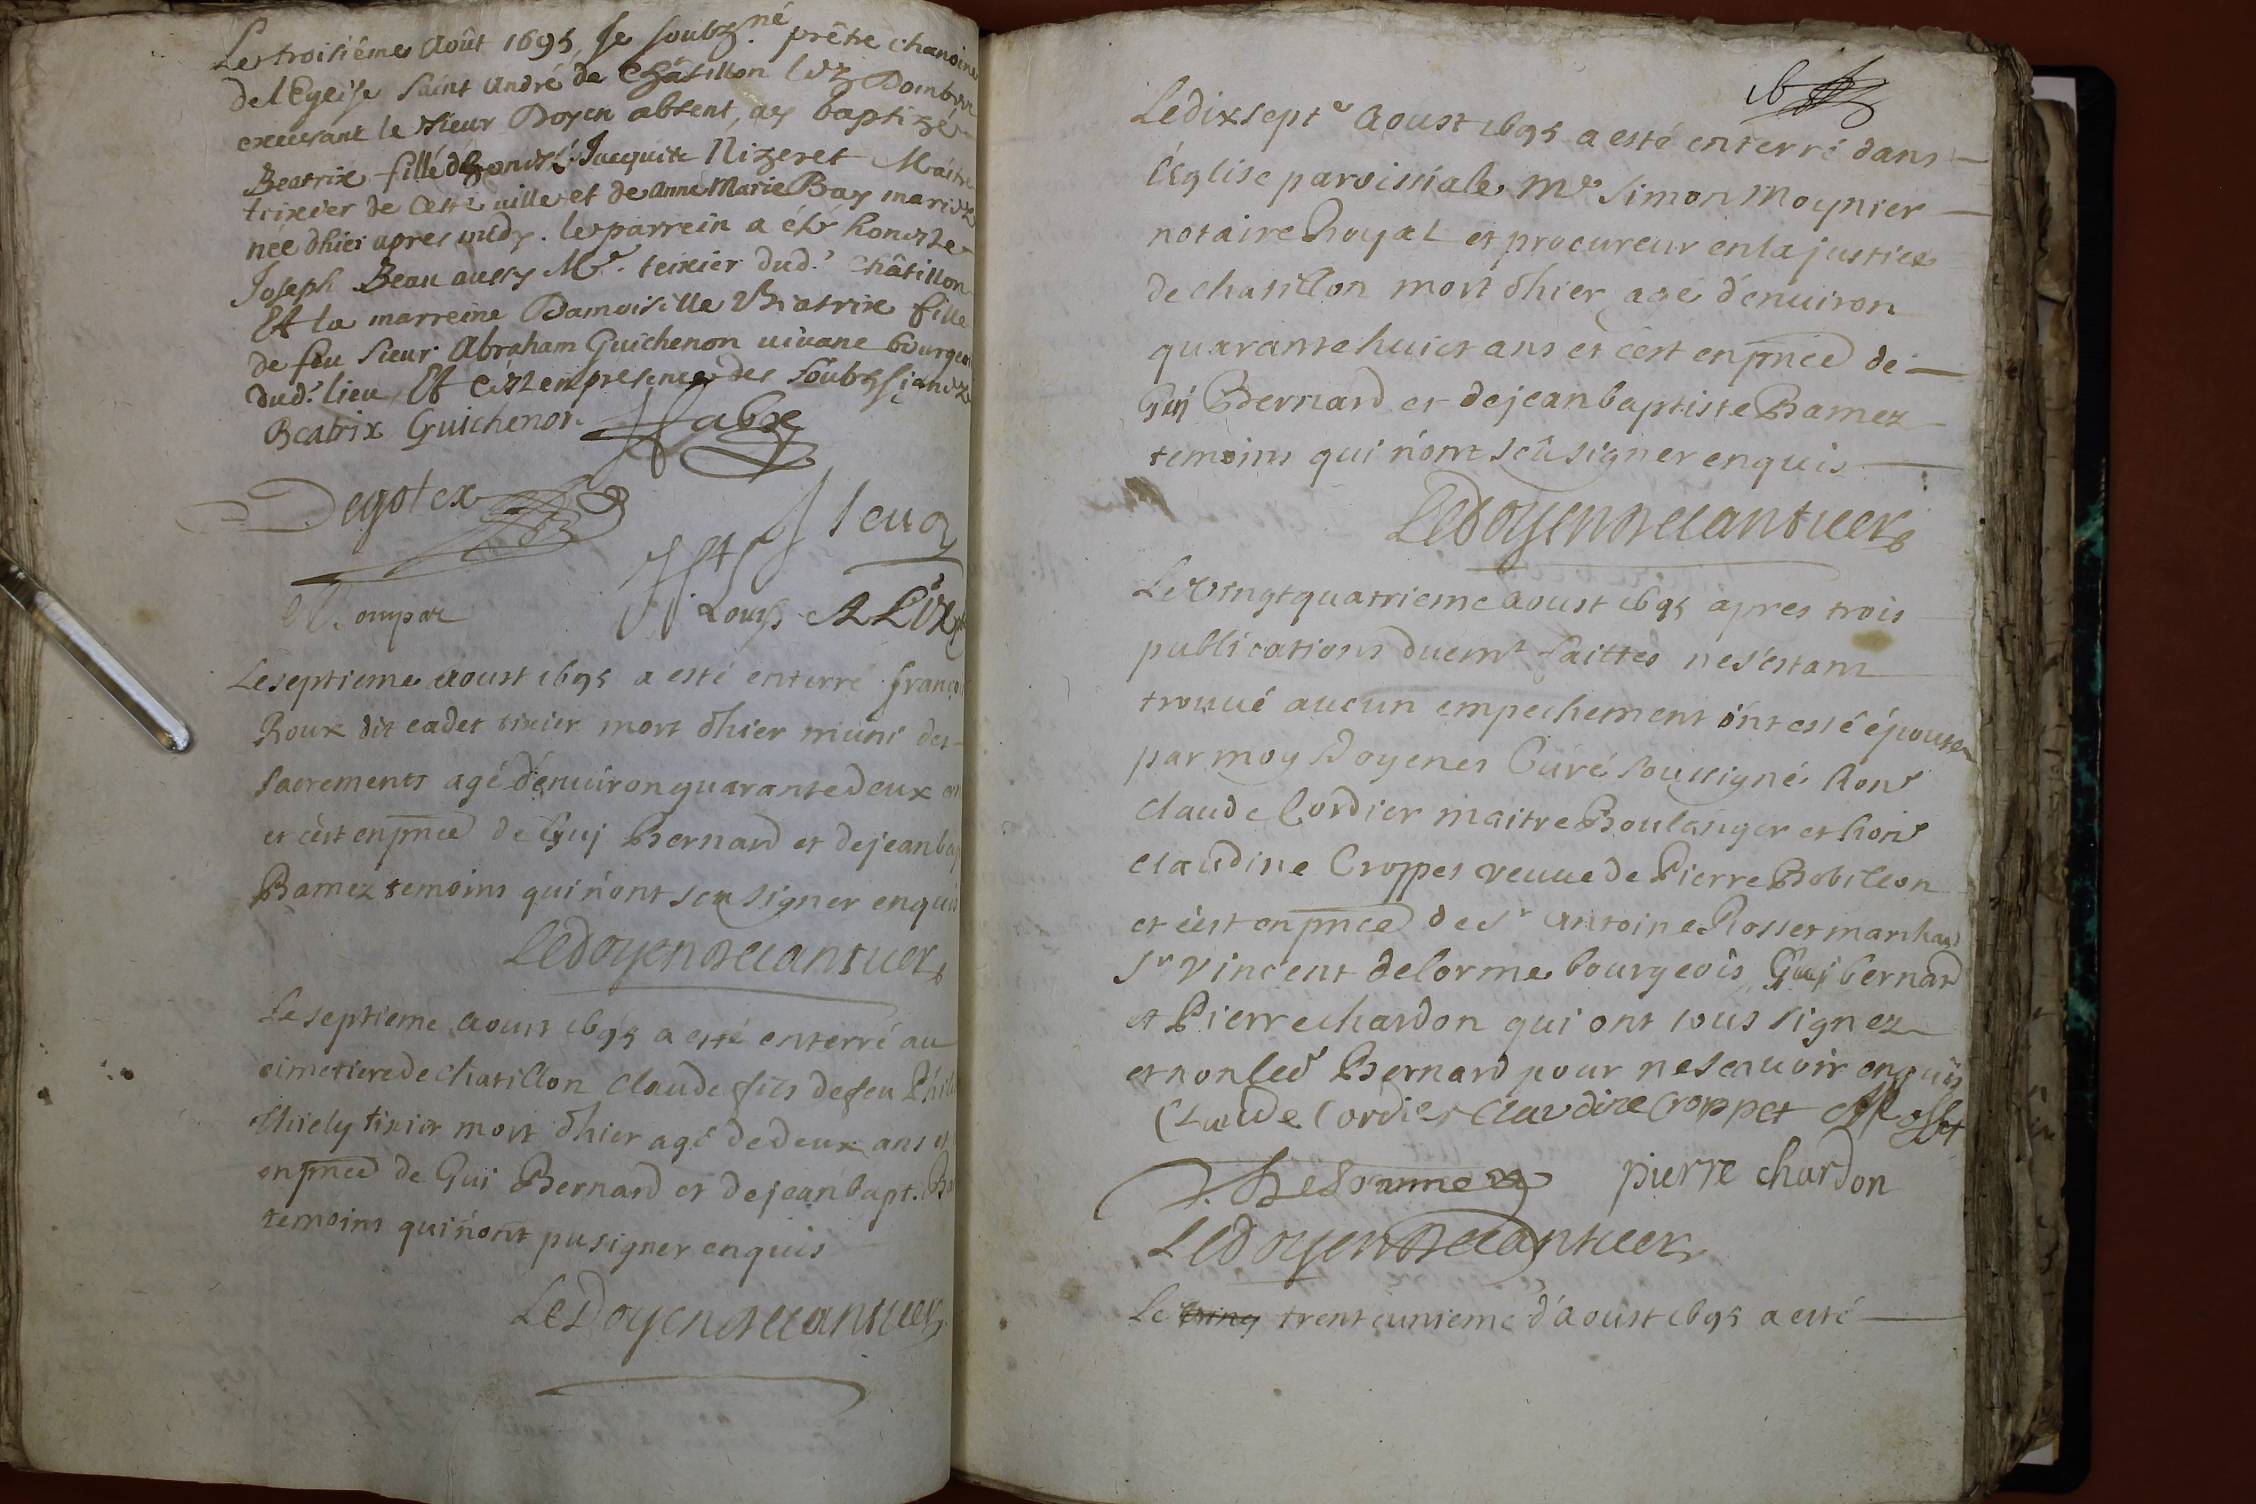 Le troisiême Août 1695, Je soubz.né prêtre chanoine
de l'Egeise saint André de Châtillon lez Dombes
exercant le sieur Doyen absent, ay baptizé
Beatrix fille d'honête Jacques Nizeret Maitre
teixier de cette uille et de anne Marie Bay mariez
née dhier apres midy. le parrein a été honeste
Joseph Beau aussy Me. teixier dud.t Châtillon
Et la marreine Damoiselle Beatrix fille
de feu sieur Abraham Guichenon uiuane bourgeois
dud.t lieu, Et c'est en presence des soubzsignez
Beatrix Guichenon. Fabre
Degotex
Louys
Le septieme aoust 1695 a esté enterré françois
Roux dit cadet tixier mort d'hier muni des
sacrements agé d'enuiron quarante deux ans
et c'est en pnce de Guy Bernard et de jean bap
Bamez temoins qui n'ont sceu signer enquis
Le doyen
Le septieme aoust 1695 a esté enterré au
cimetiere de chatillon Claude fils de feu Phil
tixier mort d'hier agé de deux ans et
en pnce de Gui Bernard et de jean bapt. Ba
temoins qui n'ont pu signer enquis
Le Doyen
16
Le dix septe aoust 1695 a esté enterré dans
l'église paroissiale Me Simon Moynier
notaire Royal et procureur en la justice
de chatillon mort d'hier agé d'enuiron
quarante huict ans et c'est en pnce de
Guy Bernard et de jean baptiste Bamez
temoins qui n'ont sçû signer enquis
Le doyen
Le vingt quatrieme aoust 1695 apres trois
publications duemt faittes ne s'estant
trouué aucun empechement ont esté épousez
par moy Doyen et Curé soussigné hont
Claude Cordier maitre Boulanger et hont
Claudine Croppet veuue de Pierre Bobilleon
et c'est en pnce de sr antoine Rosset marchand
sr Vincent delorme bourgeois, Guy bernard
et Pierre chardon qui ont tous signez
et non led Bernard pour ne scauoir enquis
Claude Cordier Claudine Croppet Rosset
Delorme pierre chardon
Le doyen
Le trent'unieme d'aoust 1695 a esté